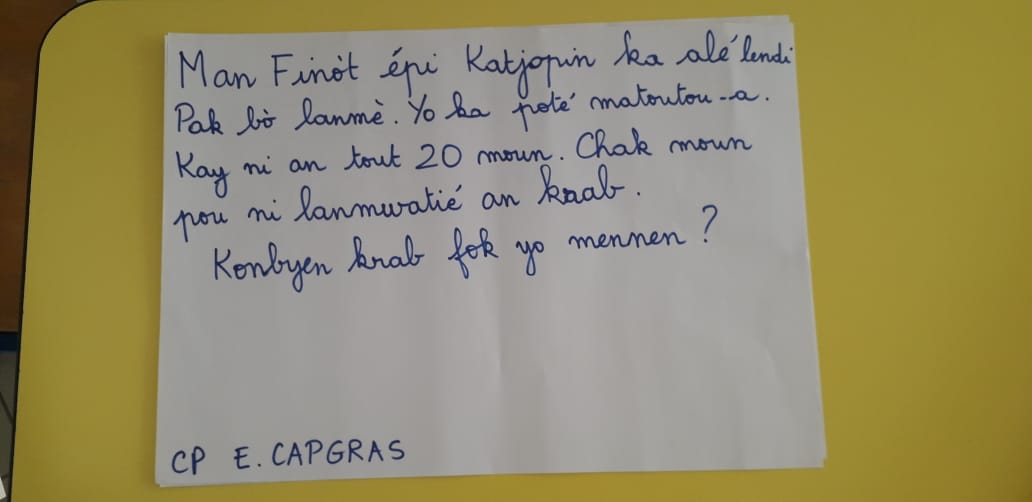 Man Finòt épi Katjopin ka alé lendi
Pak bò lanmè. Yo ka poté matoutou-a.
Kay ni an tout 20 moun. Chak moun
pou ni lanmwatié an kraab.
Konbyen krab fok yo mennen ?
CP E. CAPGRAS